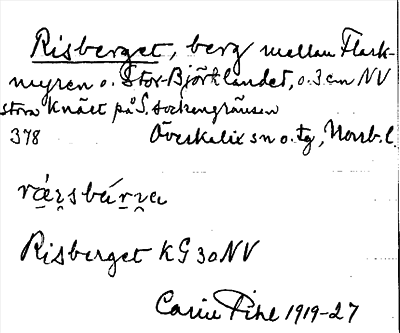 Risberget, berg mellan Flark-
myren o. Stor-Björklandet, o.3 cm NV
stora Knäet på S. sockengränsen
378 Överkalix sn o. tg, Norrb. l.
Risberget KG 30 NV
Carin Pihl 1919-27